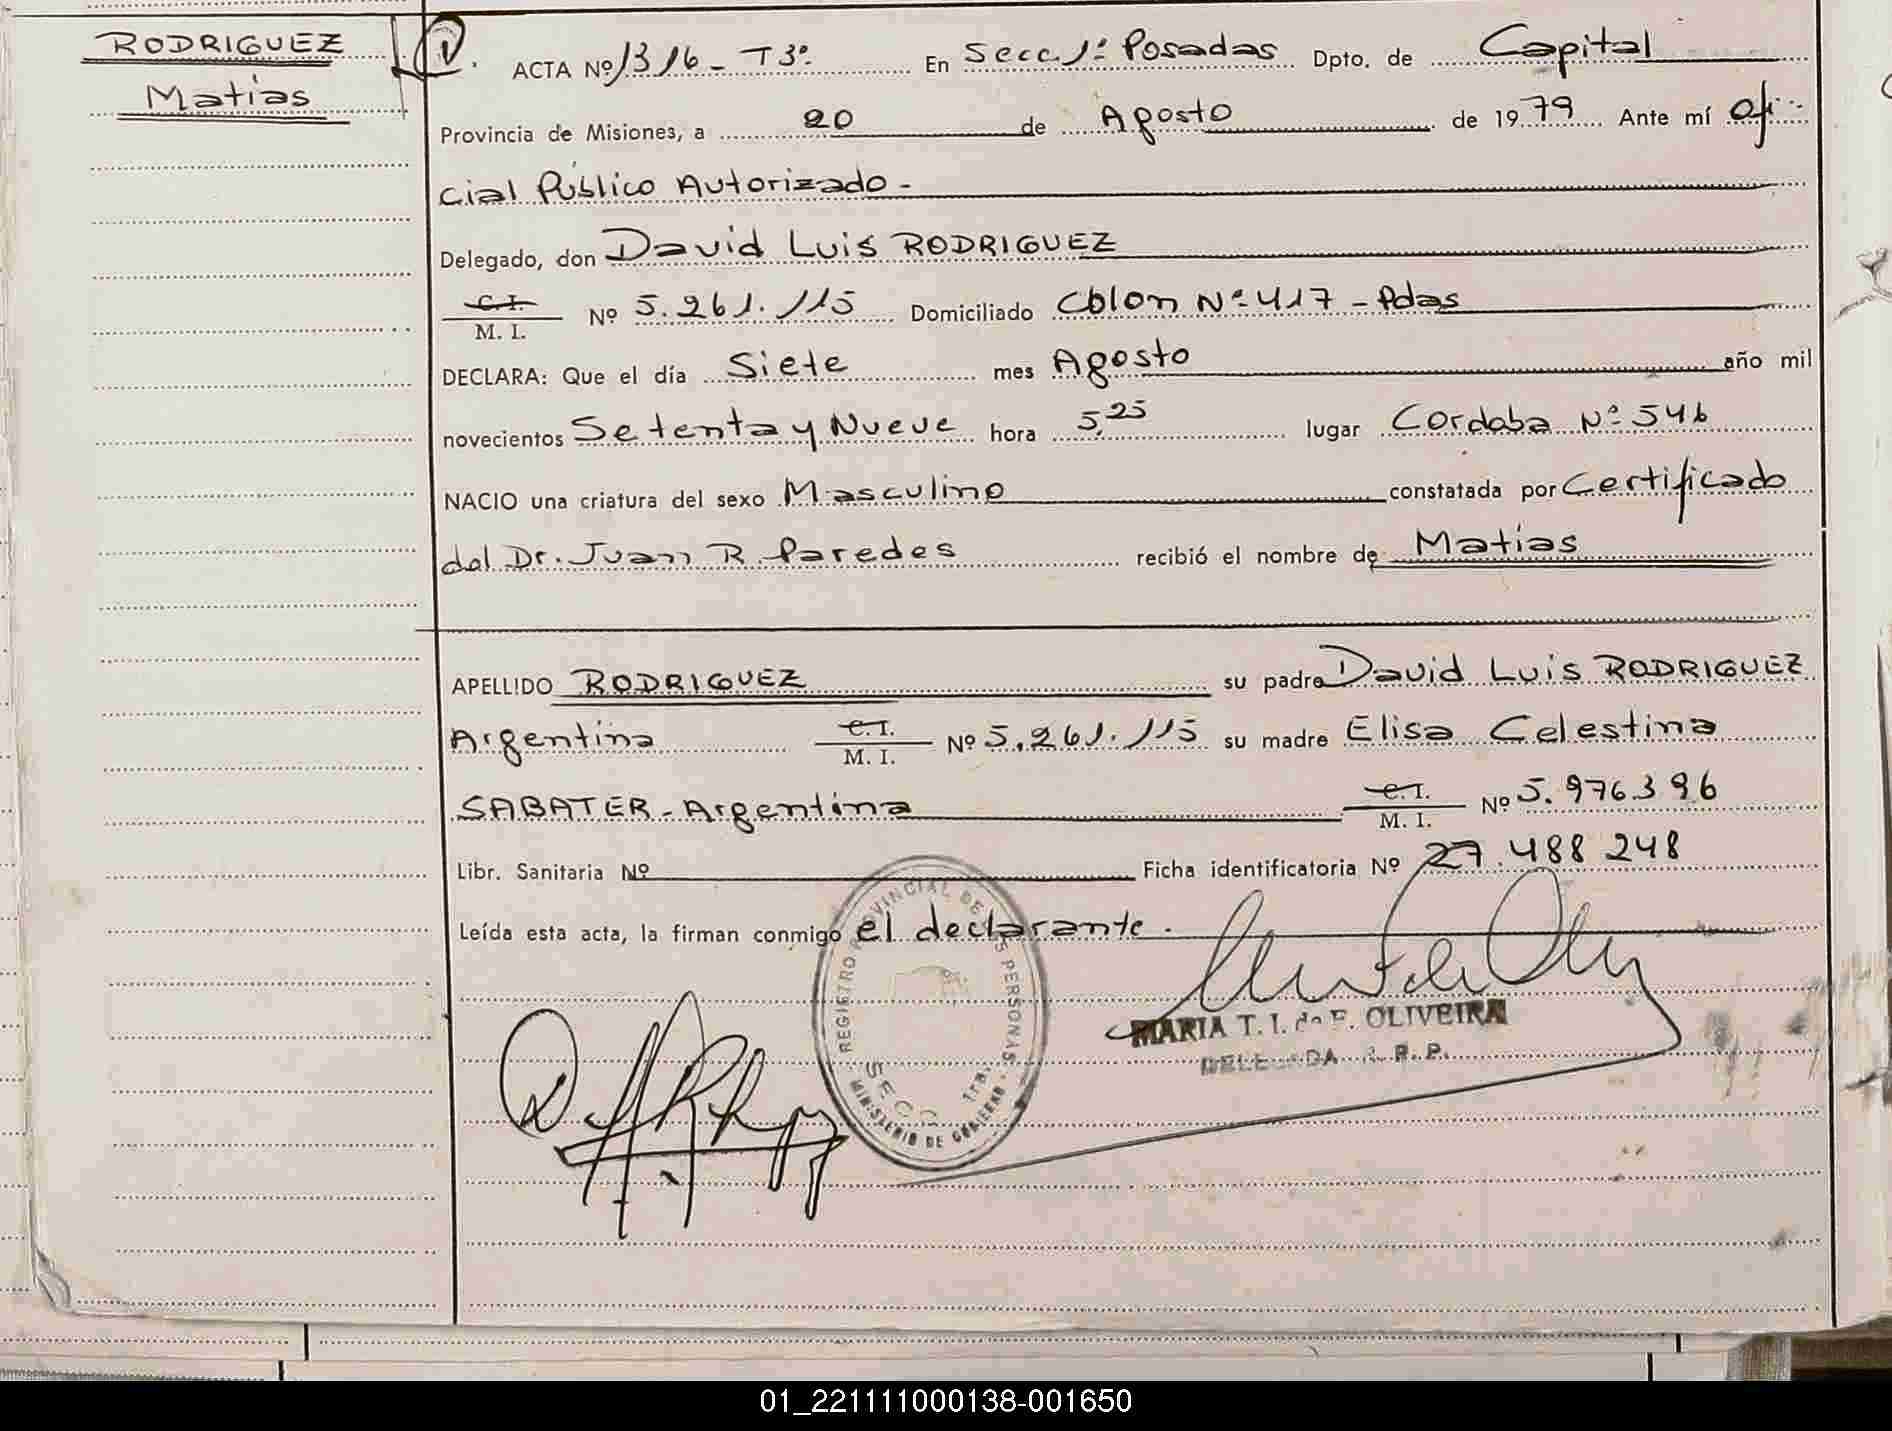 RODRIGUEZ
Matías
V. ACTA Nº 1316 - T3º. En Secc 1ª Posadas Dpto. de Capital
Provincia de Misiones, a 20 de Agosto de 1979 Ante mí Ofi-
cial Público Autorizado -
Delegado, don David Luis RODRIGUEZ
C. I.
M. I. Nº 5.261.115 Domiciliado Colon Nº 417 - Pdas
DECLARA: Que el día Siete mes Agosto año mil
novecientos Setenta y Nueve hora 5,25 lugar Cordoba Nº 546
NACIO una criatura del sexo Masculino constatada por Certificado
del Dr. Juan R. Paredes recibió el nombre de Matías
APELLIDO RODRIGUEZ su padre David Luis RODRIGUEZ
Argentina C. I.
M. I. Nº 5.261.115 su madre Elisa Celestina
SABATER - Argentina C. I.
M. I. Nº 5.976.396
Libr. Sanitaria Nº Ficha identificatoria Nº 27.488 248
Leída esta acta, la firman conmigo el declarante.
REGISTRO PROVINCIAL DE LAS PERSONAS
SECC 1ra.
MINISTERIO DE GOBIERNO
MARIA T. I. de F. OLIVEIRA
DELEGADA R. P. P.
01_221111000138-001650